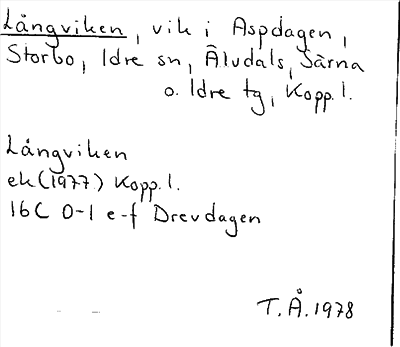 Långviken, vik i Aspdagen,
Storbo, Idre sn, Älvdals, Särna
o. Idre tg, Kopp. l.
Långviken
ek (1977) Kopp. l.
16C 0-1 e-f Drevdagen
T. Å. 1978